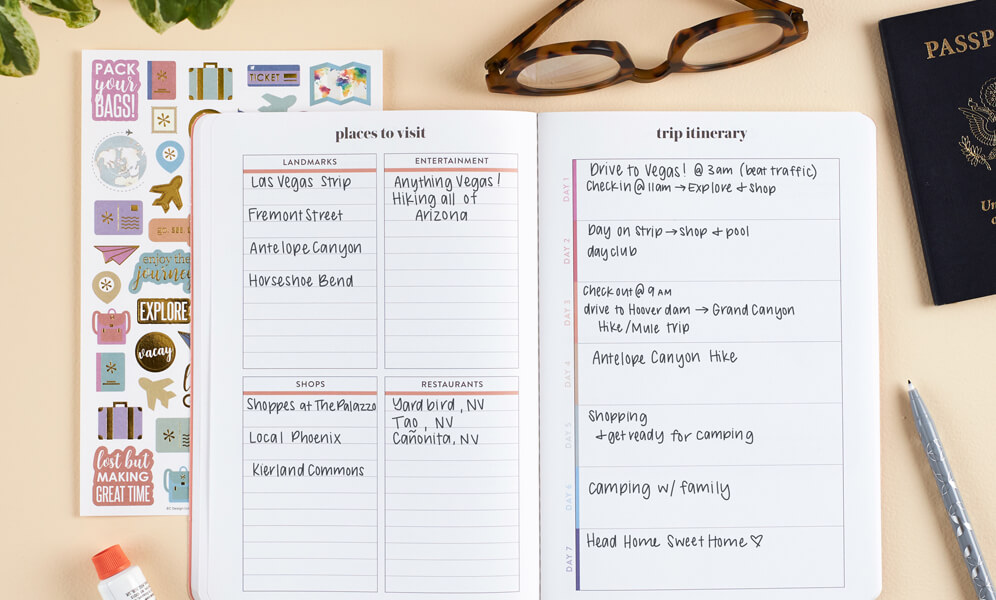 PACK
your
BAGS!
TICKET
enjoy the
journey
EXPLORE
vacay
lost but
MAKING
GREAT TIME
places to visit
LANDMARKS
Las Vegas Strip
Fremont Street
Antelope Canyon
Horseshoe Bend
ENTERTAINMENT
Anything Vegas!
Hiking all of
Arizona
SHOPS
Shoppes at The Palazzo
Local Phoenix
Kierland Commons
RESTAURANTS
Yardbird, NV
Tao, NV
Cañonita, NV
trip itinerary
DAY 1
Drive to Vegas! @ 3am (beat traffic)
Check in @ 11am → Explore & shop
DAY 2
Day on Strip → shop & pool
dayclub
DAY 3
Check out @ 9 AM
drive to Hoover dam → Grand Canyon
Hike/Mule trip
DAY 4
Antelope Canyon Hike
DAY 5
Shopping
& get ready for camping
DAY 6
camping w/ family
DAY 7
Head Home Sweet Home ♡
PASSP
Un